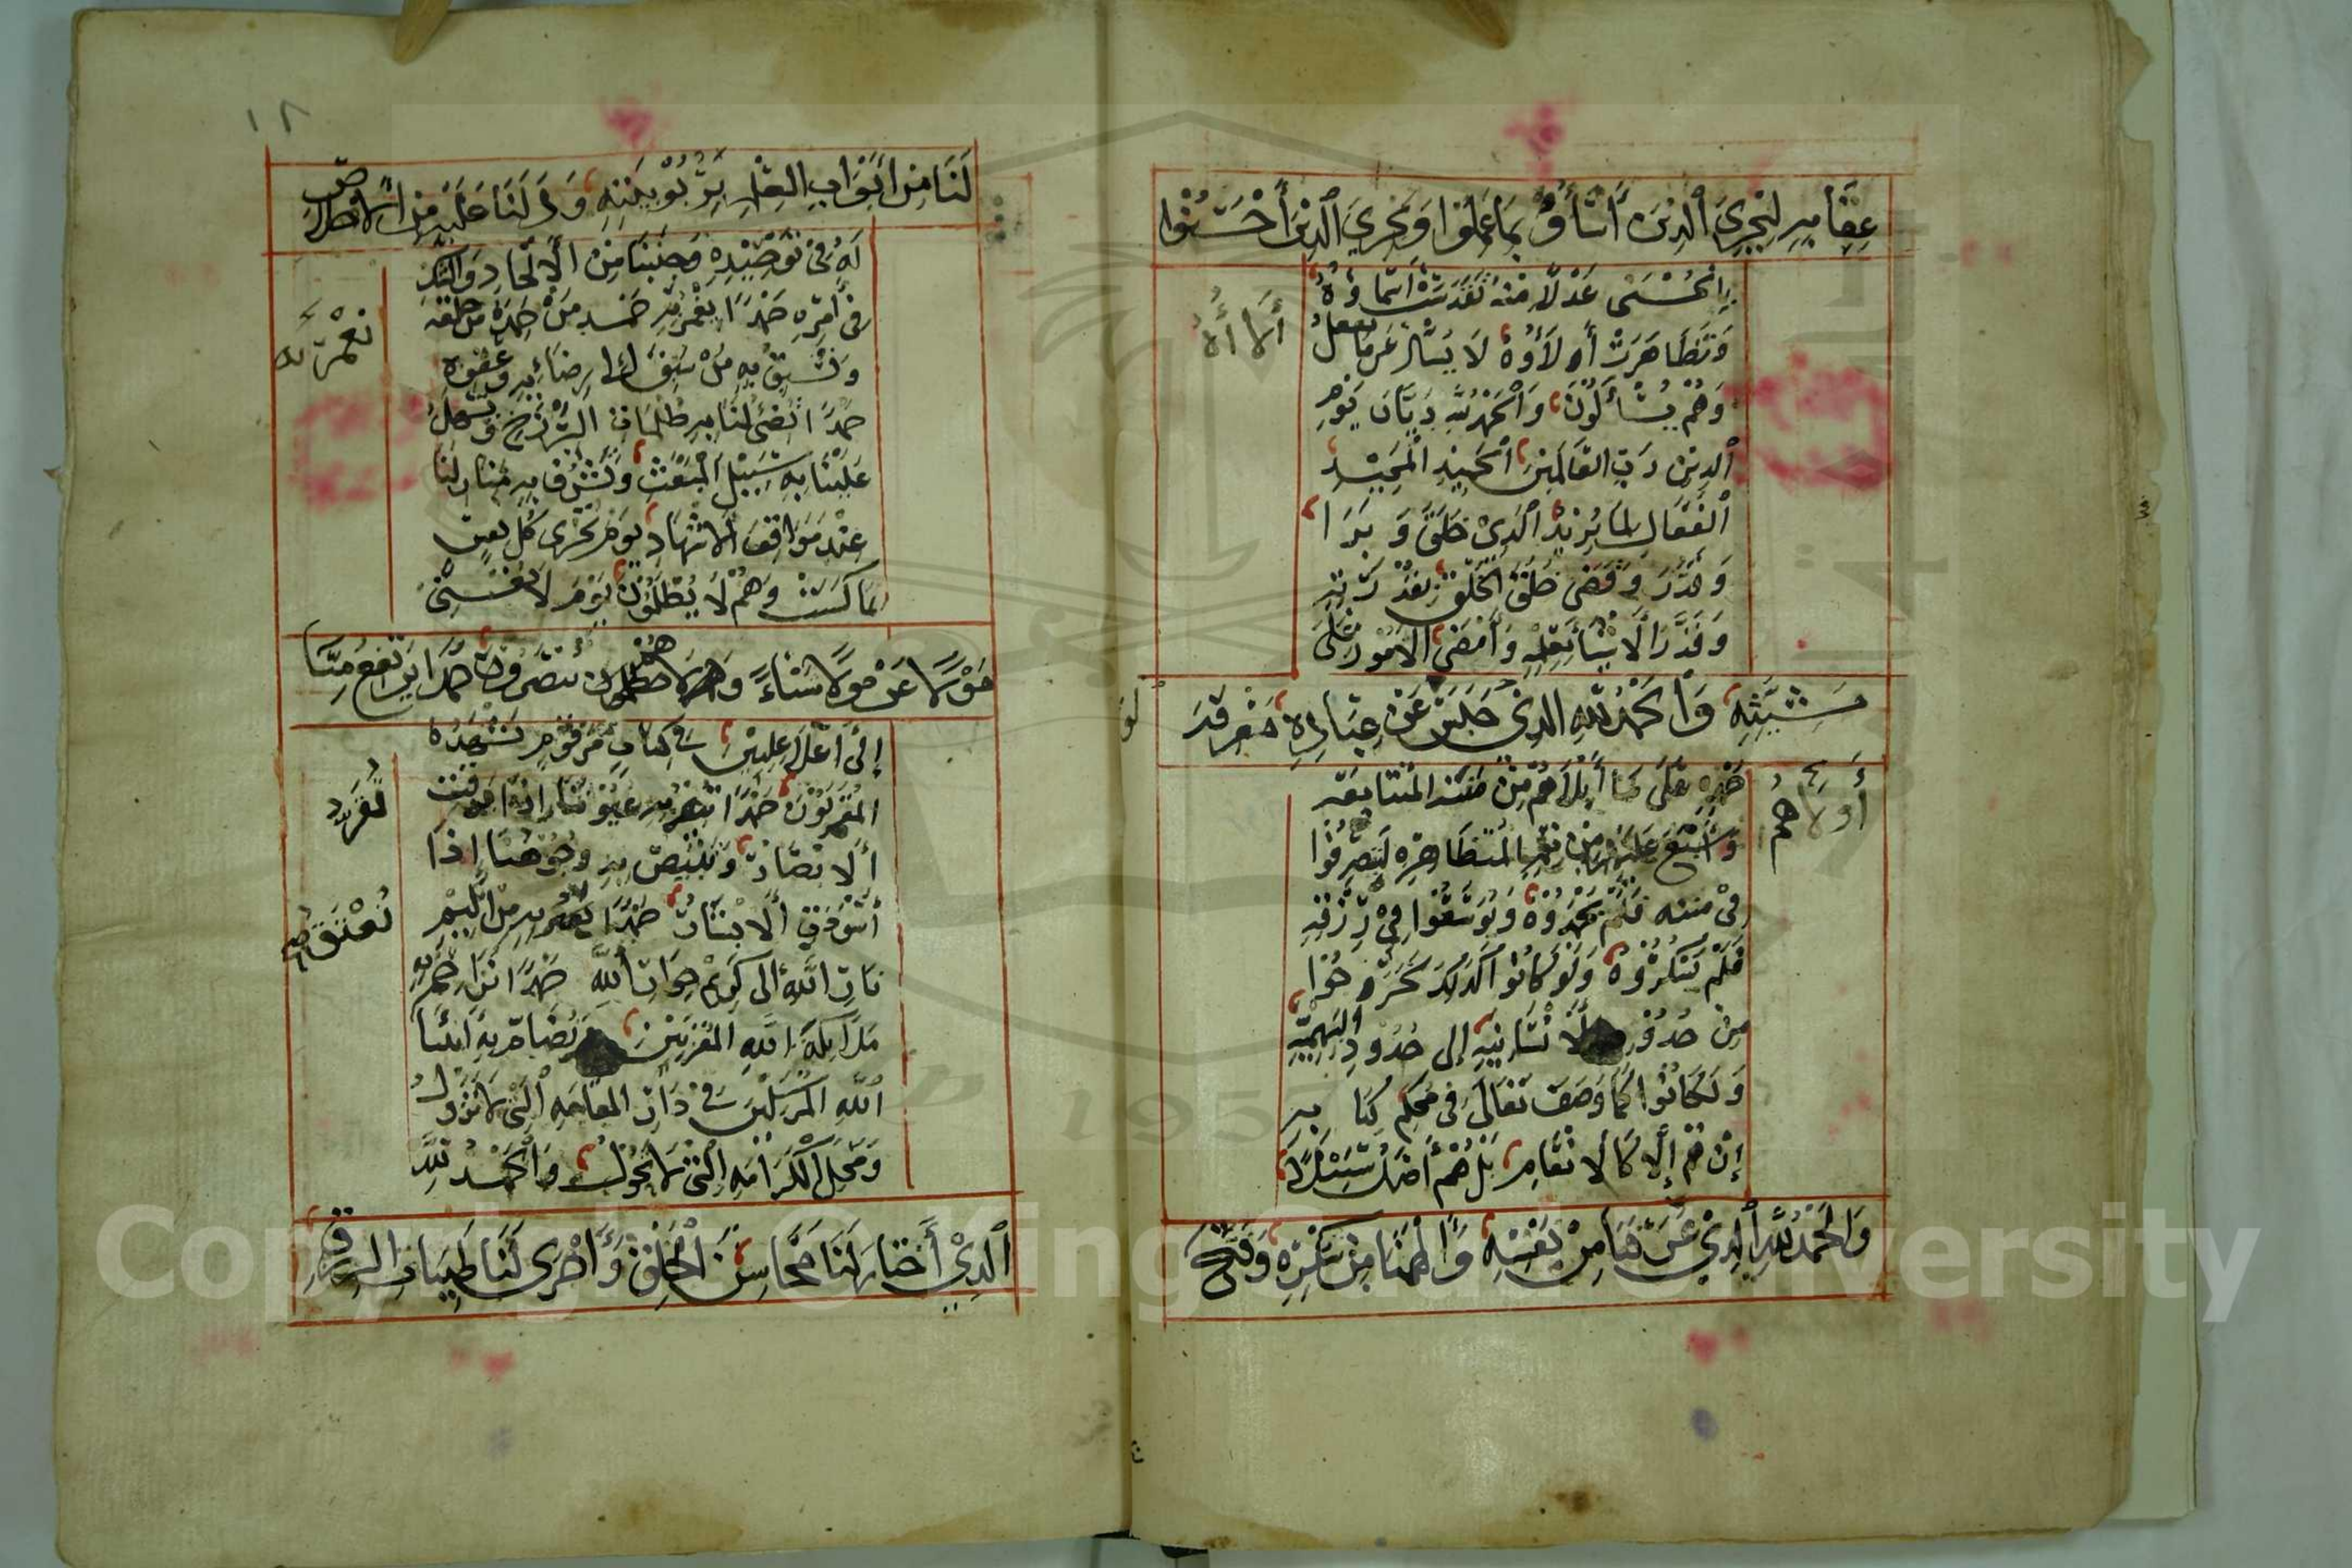 عِقَابِهِ لِيَجْزِيَ ٱلَّذِينَ أَسَاؤُا بِمَا عَمِلُوا وَيَجْزِيَ ٱلَّذِينَ أَحْسَنُوا
بِالْحُسْنَى عَدْلًا مِنْهُ تَقَدَّسَتْ أَسْمَاؤُهُ
وَتَظَاهَرَتْ أَولَاؤُهُ لَا يُسْأَلُ عَمَّا يفعلُ
وَهُمْ يُسْأَلُونَ وَالْحَمْدُ لِلَّهِ دَيَّانَ يَوْمِ
ٱلدِّينِ رَبِّ العَالَمِينَ الحَمِيدِ المَجِيدِ
ٱلفَعَّالِ لِمَا يُرِيدُ ٱلَّذِي خَلَقَ وَبَرَا
وَقَدَّرَ وَقَضَى خَلَقَ الخَلْقَ بِقُدْرَتِهِ
وَقَدَّرَ الأَشْيَا بِعِلْمِهِ وَأَمْضَى الأُمُورَ عَلَى
مَشِيَّتِهِ وَالْحَمْدُ لِلَّهِ الَّذِي حَبَسَ عَنْ عِبَادِهِ مَعْرِفَةَ
حَمْدِهِ عَلَى مَا أَبْلَاهُمْ مِنْ مِنَنِهِ المُتَتَابِعَةِ
وَأَسْبَغَ عَلَيْهِمْ مِنْ نِعَمِهِ المُتَظَاهِرِه لَتَصَرَّفُوا
فِي مننه فَلَمْ يَحْمَدُوْهُ وَتَوَسَّعُوا فِي رِزْقِهِ
فَلَمْ يَشْكُرُوهُ وَلَوْ كَانُوا كَذَلِكَ لَخَرَجُوا
مِنْ حُدُودِ الإِنْسَانِيَّةِ إلى حُدُودِ البَهِيمِيَّةِ
وَلَكَانُوا كَمَا وَصَفَ تَعَالَى فِي مُحْكَمِ كِتَابِهِ
إِنْ هُمْ إِلَّا كَالأَنْعَامِ بَلْ هُمْ أَضَلُّ سَبِيْلًا
وَالحَمْدُ لِلَّهِ ٱلَّذِي عَرَّفَنَا مِنْ نَفْسِهِ وَأَلْهَمَنَا مِنْ شُكْرِهِ وَفَتَحَ
أَولَاهُمْ
١٨
لَنَا مِنْ أَبْوَابِ العِلْمِ بِرُبُوْبِيَّتِهِ وَدَلَّنَا عَلَيْهِ مِنَ الإخلاصِ
لَهُ فِي تَوْحِيْدِهِ وَجَنَّبَنَا مِنَ الإِلْحَادِ وَالشَّكِّ
فِي أَمْرِهِ حَمْدًا نُعَمَّرُ بِهِ فيمَنْ حَمِدَهُ من خلقه
وَنَسْبِقُ بِهِ مَنْ سَبَقَ إلى رِضَائِهِ وَعَفْوِهِ
حَمْدًا يُضِئُ لَنَا بِهِ ظُلُمَاتِ البَرْزَخِ وَيُسَهِّلُ
عَلَيْنَا بِهِ سَبِيْلَ المَبْعَثِ وَيُشَرِّفُ بِهِ مَنَازِلَنَا
عِنْدَ مَوَاقِفِ الأَشْهَادِ يَوْمَ تُجْزَى كُلُّ نفسٍ
بِمَا كَسَبَتْ وَهُمْ لَا يُظْلَمُوْنَ يَوْمَ لَا يُغْنِي
مَوْلًا عَنْ مَوْلًا شَيْئًا وَلَا هُمْ يُنْصَرُونَ حَمْدًا يَرْتَفِعُ مِنَّا
إِلَى أَعْلَا عِلِيِّينَ فِي كِتَابٍ مَرْقُوْمٍ يَشْهَدُهُ
المُقَرَّبُوْنَ حَمْدًا تَقَرُّ بِهِ عُيُوْنُنَا إِذَا برقت
الأَبْصَارُ وَتَبْيَضُّ بِهِ وُجُوْهُنَا إِذَا
اسْوَدَّتِ الأَبْشَارُ حَمْدًا نُعْتَقُ بِهِ مِنْ أَلِيْمِ
نَارِ اللَّهِ إلى كَرِيْمِ جِوَارِ اللَّهِ حَمْدًا نُزَاحِمُ بِهِ
مَلَائِكَةَ اللَّهِ المُقَرَّبِيْنَ وَنُضَامُّ بِهِ أَنْبِيَاءَ
اللَّهِ المُرْسَلِيْنَ فِي دَارِ المُقَامَةِ الَّتِي لَا تَزُولُ
وَمَحَلِّ الكَرَامَةِ الَّتِي لَا تَحُوْلُ وَالْحَمْدُ لِلَّهِ
ٱلَّذِي أَخْتَارَ لَنَا مَحَاسِنَ الخَلْقِ وَأَجْرَى لَنَا طَيِّبَاتِ الرِّزْقِ
Copyright © King Saud University
1957